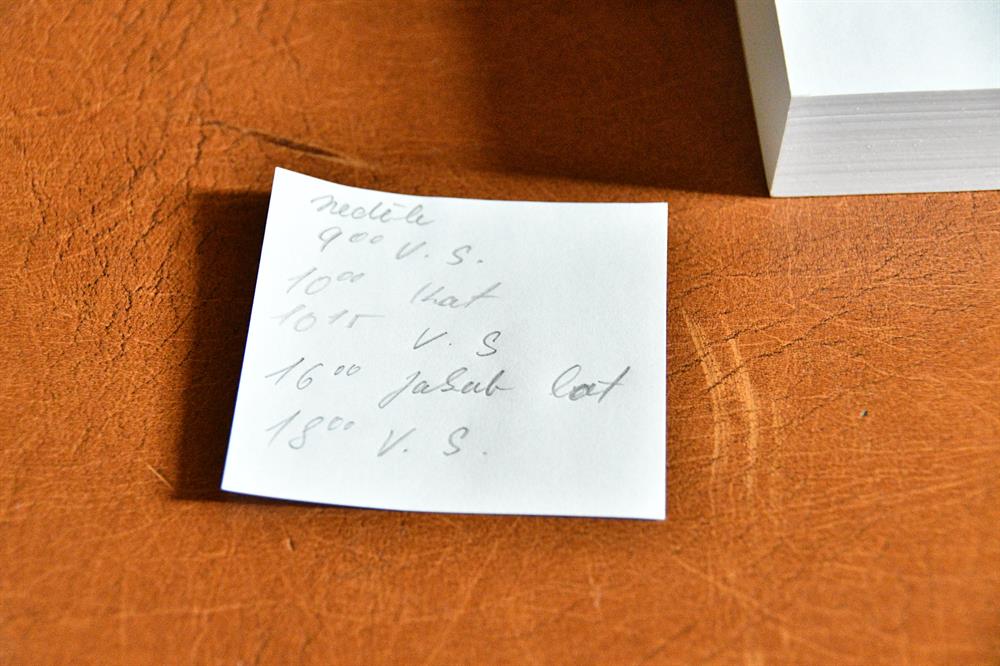 neděle
9⁰⁰ V. S.
10⁰⁰ Kat
10¹⁵ V. S
16⁰⁰ Jakub lat
18⁰⁰ V. S.